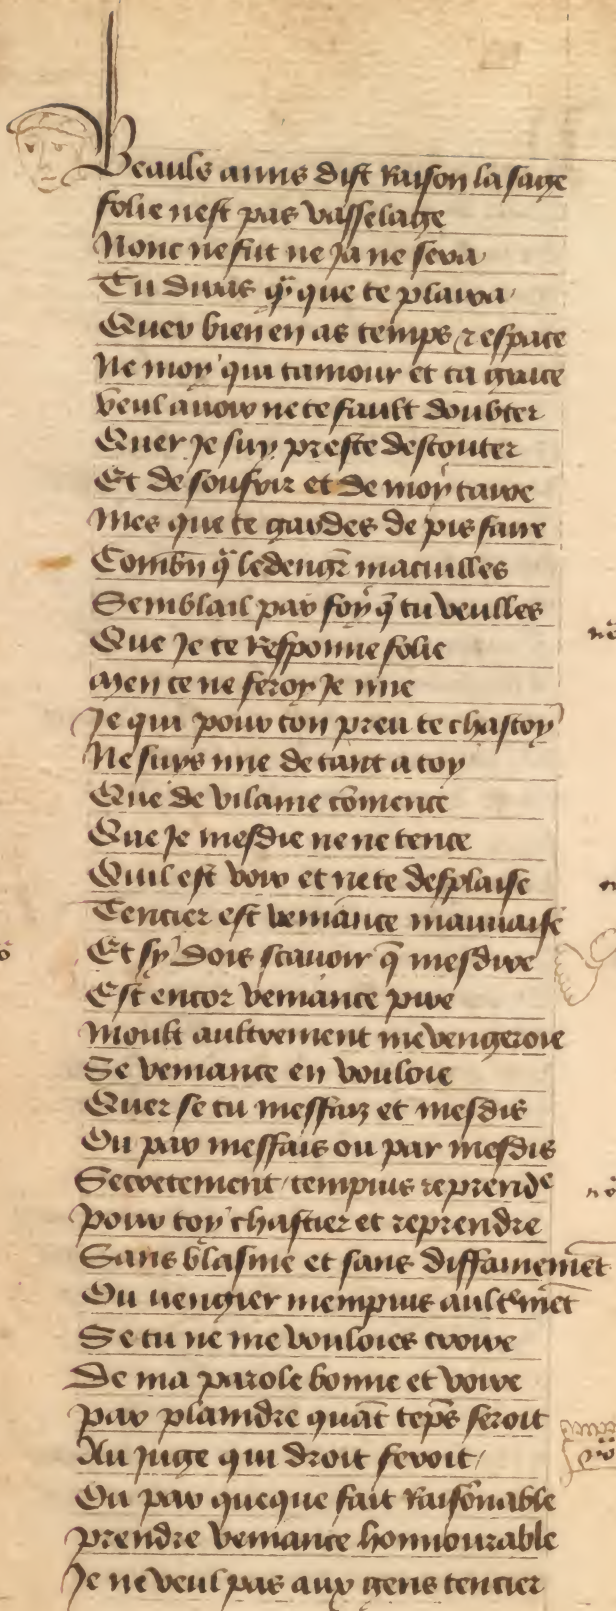 Beauls amis dist Raison la sage
folie nest pas vasselage
Nonc ne fut ne ja ne sera
Tu diras q̄ que te plaira
Quer bien en as temps ⁊ espace
Ne moy qui tamour et ta grace
veul avoir ne te fault doubter
Quer je suy preste descouter
Et de soufrir et de moy taire
Mes que te gardes de pis faire
Combn̄ q̄ ledengr̄
Semblail par foy q̄ tu veulles
Que Je te Responne folie
Men ce ne feroy Je mie
Je qui pour ton preu te chastoy
Ne suys mie de tant a toy
Que de vilanie cōmence
Que Je mesdie ne ne tence
Quil est voir et ne te desplaise
Tencier est veniance mauuaise
Et sy dois scauoir q̄ mesdire
Est encor veniance pire
Moult aultrement me vengeroie
Se veniance en vouloie
Quer se tu meffaiz et mesdis
Ou par meffais ou par mesdis
Secretement tempuis reprendᵉ
Pour toy chastier et reprendre
Sans blasme et sans diffamemēt
Ou uengier mempuis aultᵉmēt
Se tu ne me vouloies croire
De ma parole bonne et voire
Par plaindre quāt tēps seroit
Au juge qui droit feroit
Ou par queque fait Raisōnable
Prendre veniance honnourable
Je ne veul pas aux gens tencier